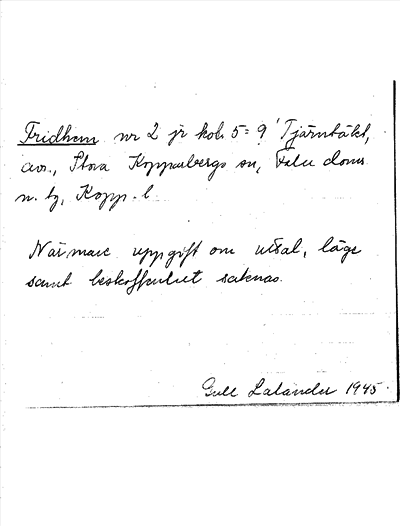 Fridhem nr 2 jr kol. 5 = 9 Tjärntäkt,
avs., Stora Kopparbergs sn, Falu doms
n. tg, Kopp. l
Närmare uppgift om uttal, läge
samt beskaffenhet saknas.
Gull Lalander 1945.